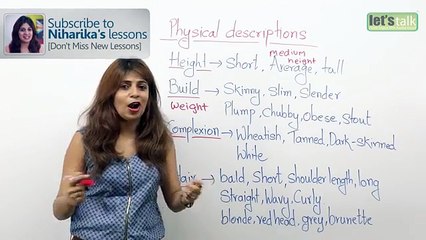 Subscribe to
Niharika's lessons
[Don't Miss New Lessons]
let's talk
Physical descriptions
medium
height
Height → Short, Average, tall
Build → Skinny, Slim, Slender
Weight Plump, Chubby, Obese, Stout
Complexion → Wheatish, Tanned, Dark-skinned
White
Hair → bald, Short, shoulder length, long
Straight, Wavy, Curly
blonde, redhead, grey, brunette